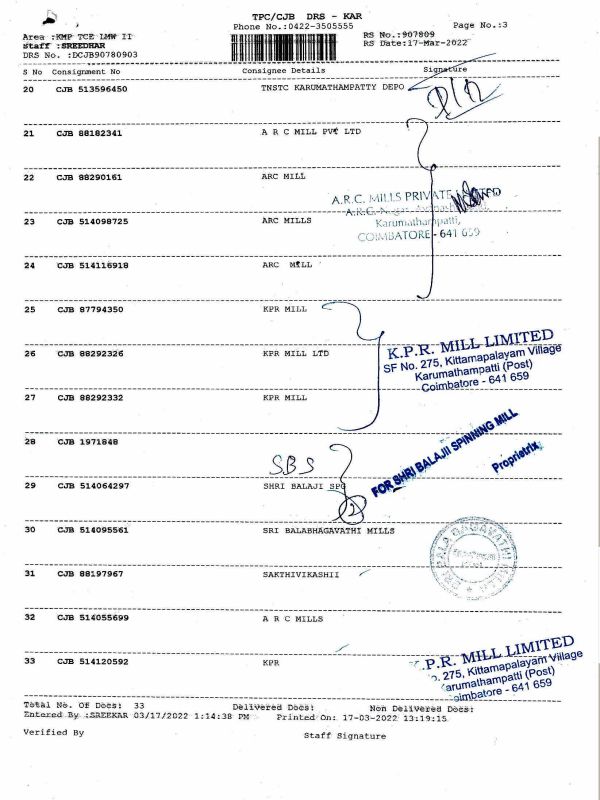 TPC/CJB DRS - KAR
Phone No.:0422-3505555
Page No.:3
Area :KMP TCE LMW II
Staff :SREEDHAR
DRS No. :DCJB90780903
RS No.:907809
RS Date:17-Mar-2022
S No Consignment No Consignee Details Signature
20 CJB 513596450 TNSTC KARUMATHAMPATTY DEPO
21 CJB 88182341 A R C MILL PVT LTD
22 CJB 88290161 ARC MILL
A.R.C. MILLS PRIVATE LIMITED
23 CJB 514098725 ARC MILLS
Karumathampatti,
COIMBATORE - 641 659
24 CJB 514116918 ARC MILL
25 CJB 87794350 KPR MILL
26 CJB 88292326 KPR MILL LTD
K.P.R. MILL LIMITED
SF No. 275, Kittamapalayam Village
Karumathampatti (Post)
Coimbatore - 641 659
27 CJB 88292332 KPR MILL
28 CJB 1971848
SBS
FOR SHRI BALAJII SPINNING MILL
Proprietrix
29 CJB 514064297 SHRI BALAJI SPG
2
30 CJB 514095561 SRI BALABHAGAVATHI MILLS
31 CJB 88197967 SAKTHIVIKASHII
32 CJB 514055699 A R C MILLS
33 CJB 514120592 KPR
.P.R. MILL LIMITED
o. 275, Kittamapalayam Village
arumathampatti (Post)
oimbatore - 641 659
Total No. Of Docs: 33 Delivered Docs: Non Delivered Docs:
Entered By :SREEKAR 03/17/2022 1:14:38 PM Printed On: 17-03-2022 13:19:15
Verified By Staff Signature